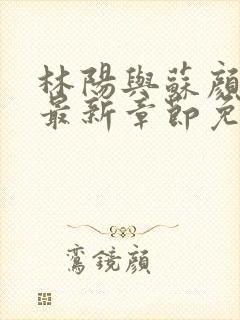 林陽與蘇顔
最新章節免
鸞鏡顔